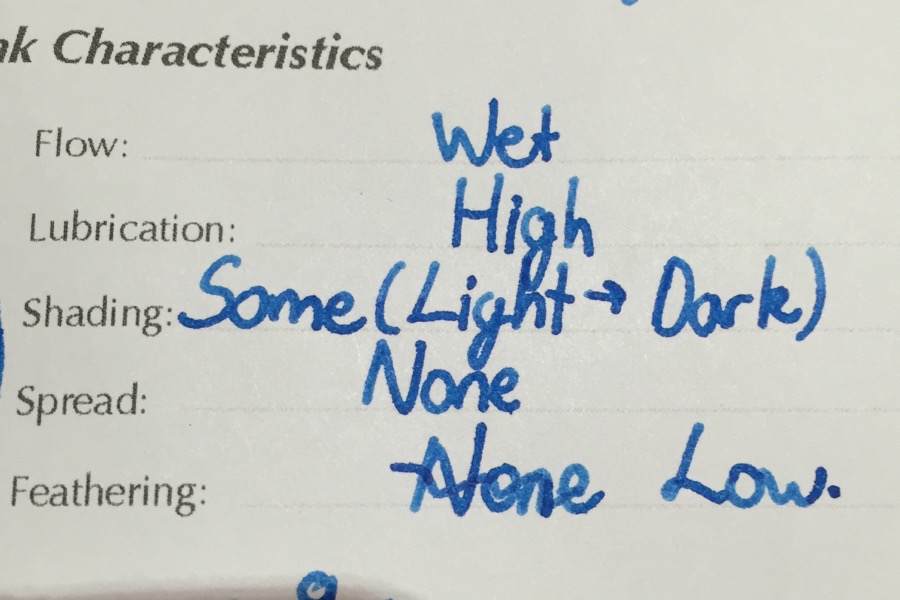 nk Characteristics
Flow: Wet
Lubrication: High
Shading: Some (Light → Dark)
Spread: None
Feathering: None Low.